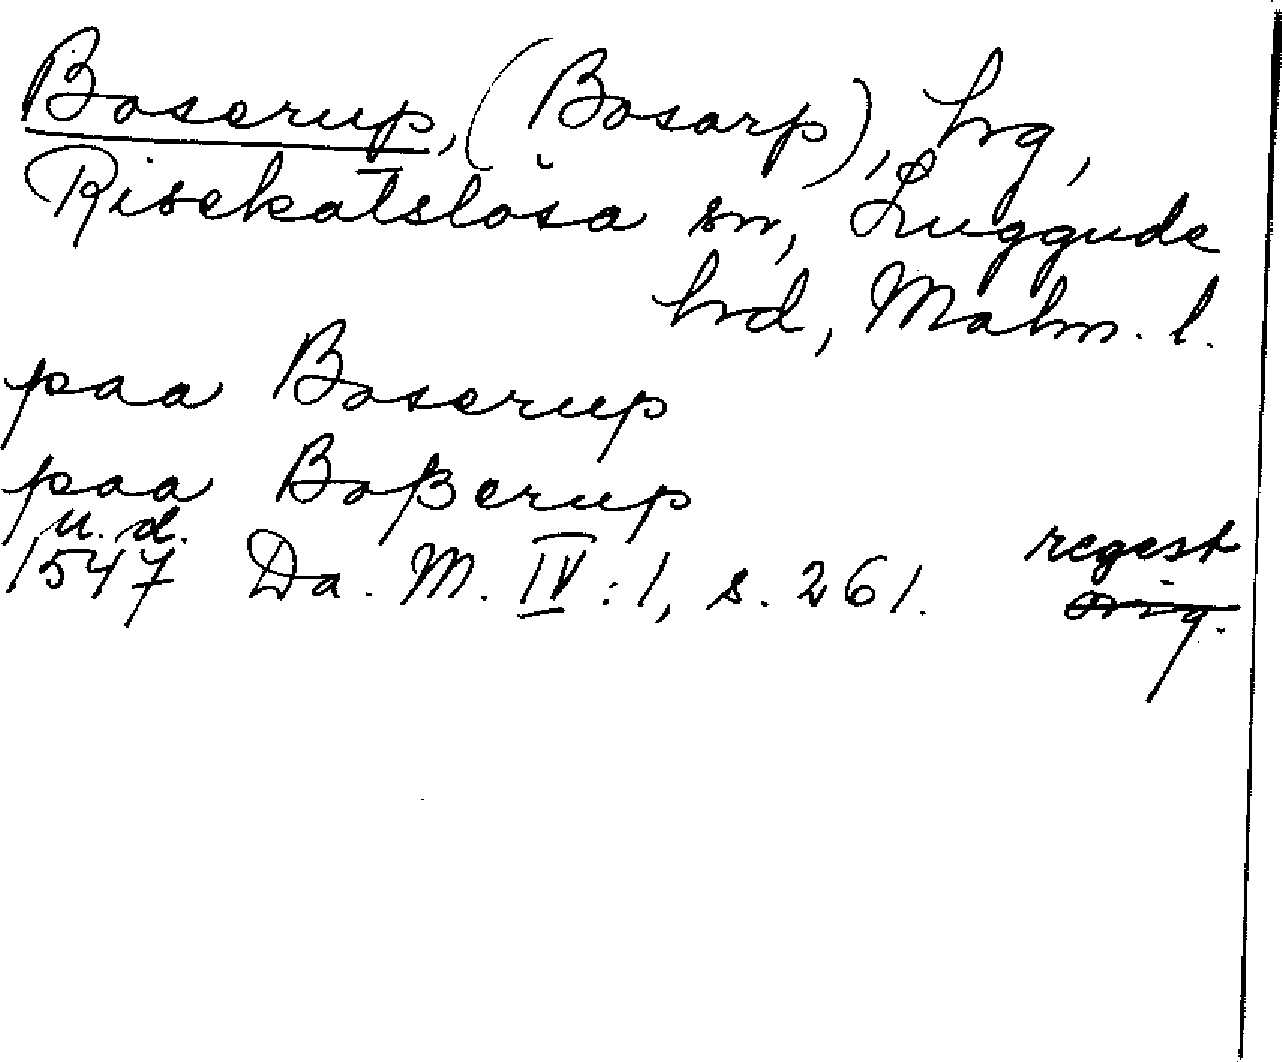 Boserup, (Bosarp), hrg,
Risekatslösa sn, Luggude
hrd, Malm. l.
paa Boserup
paa Boßerup
u. d.
1547 Da. M. IV:1, s. 261. regest
orig.